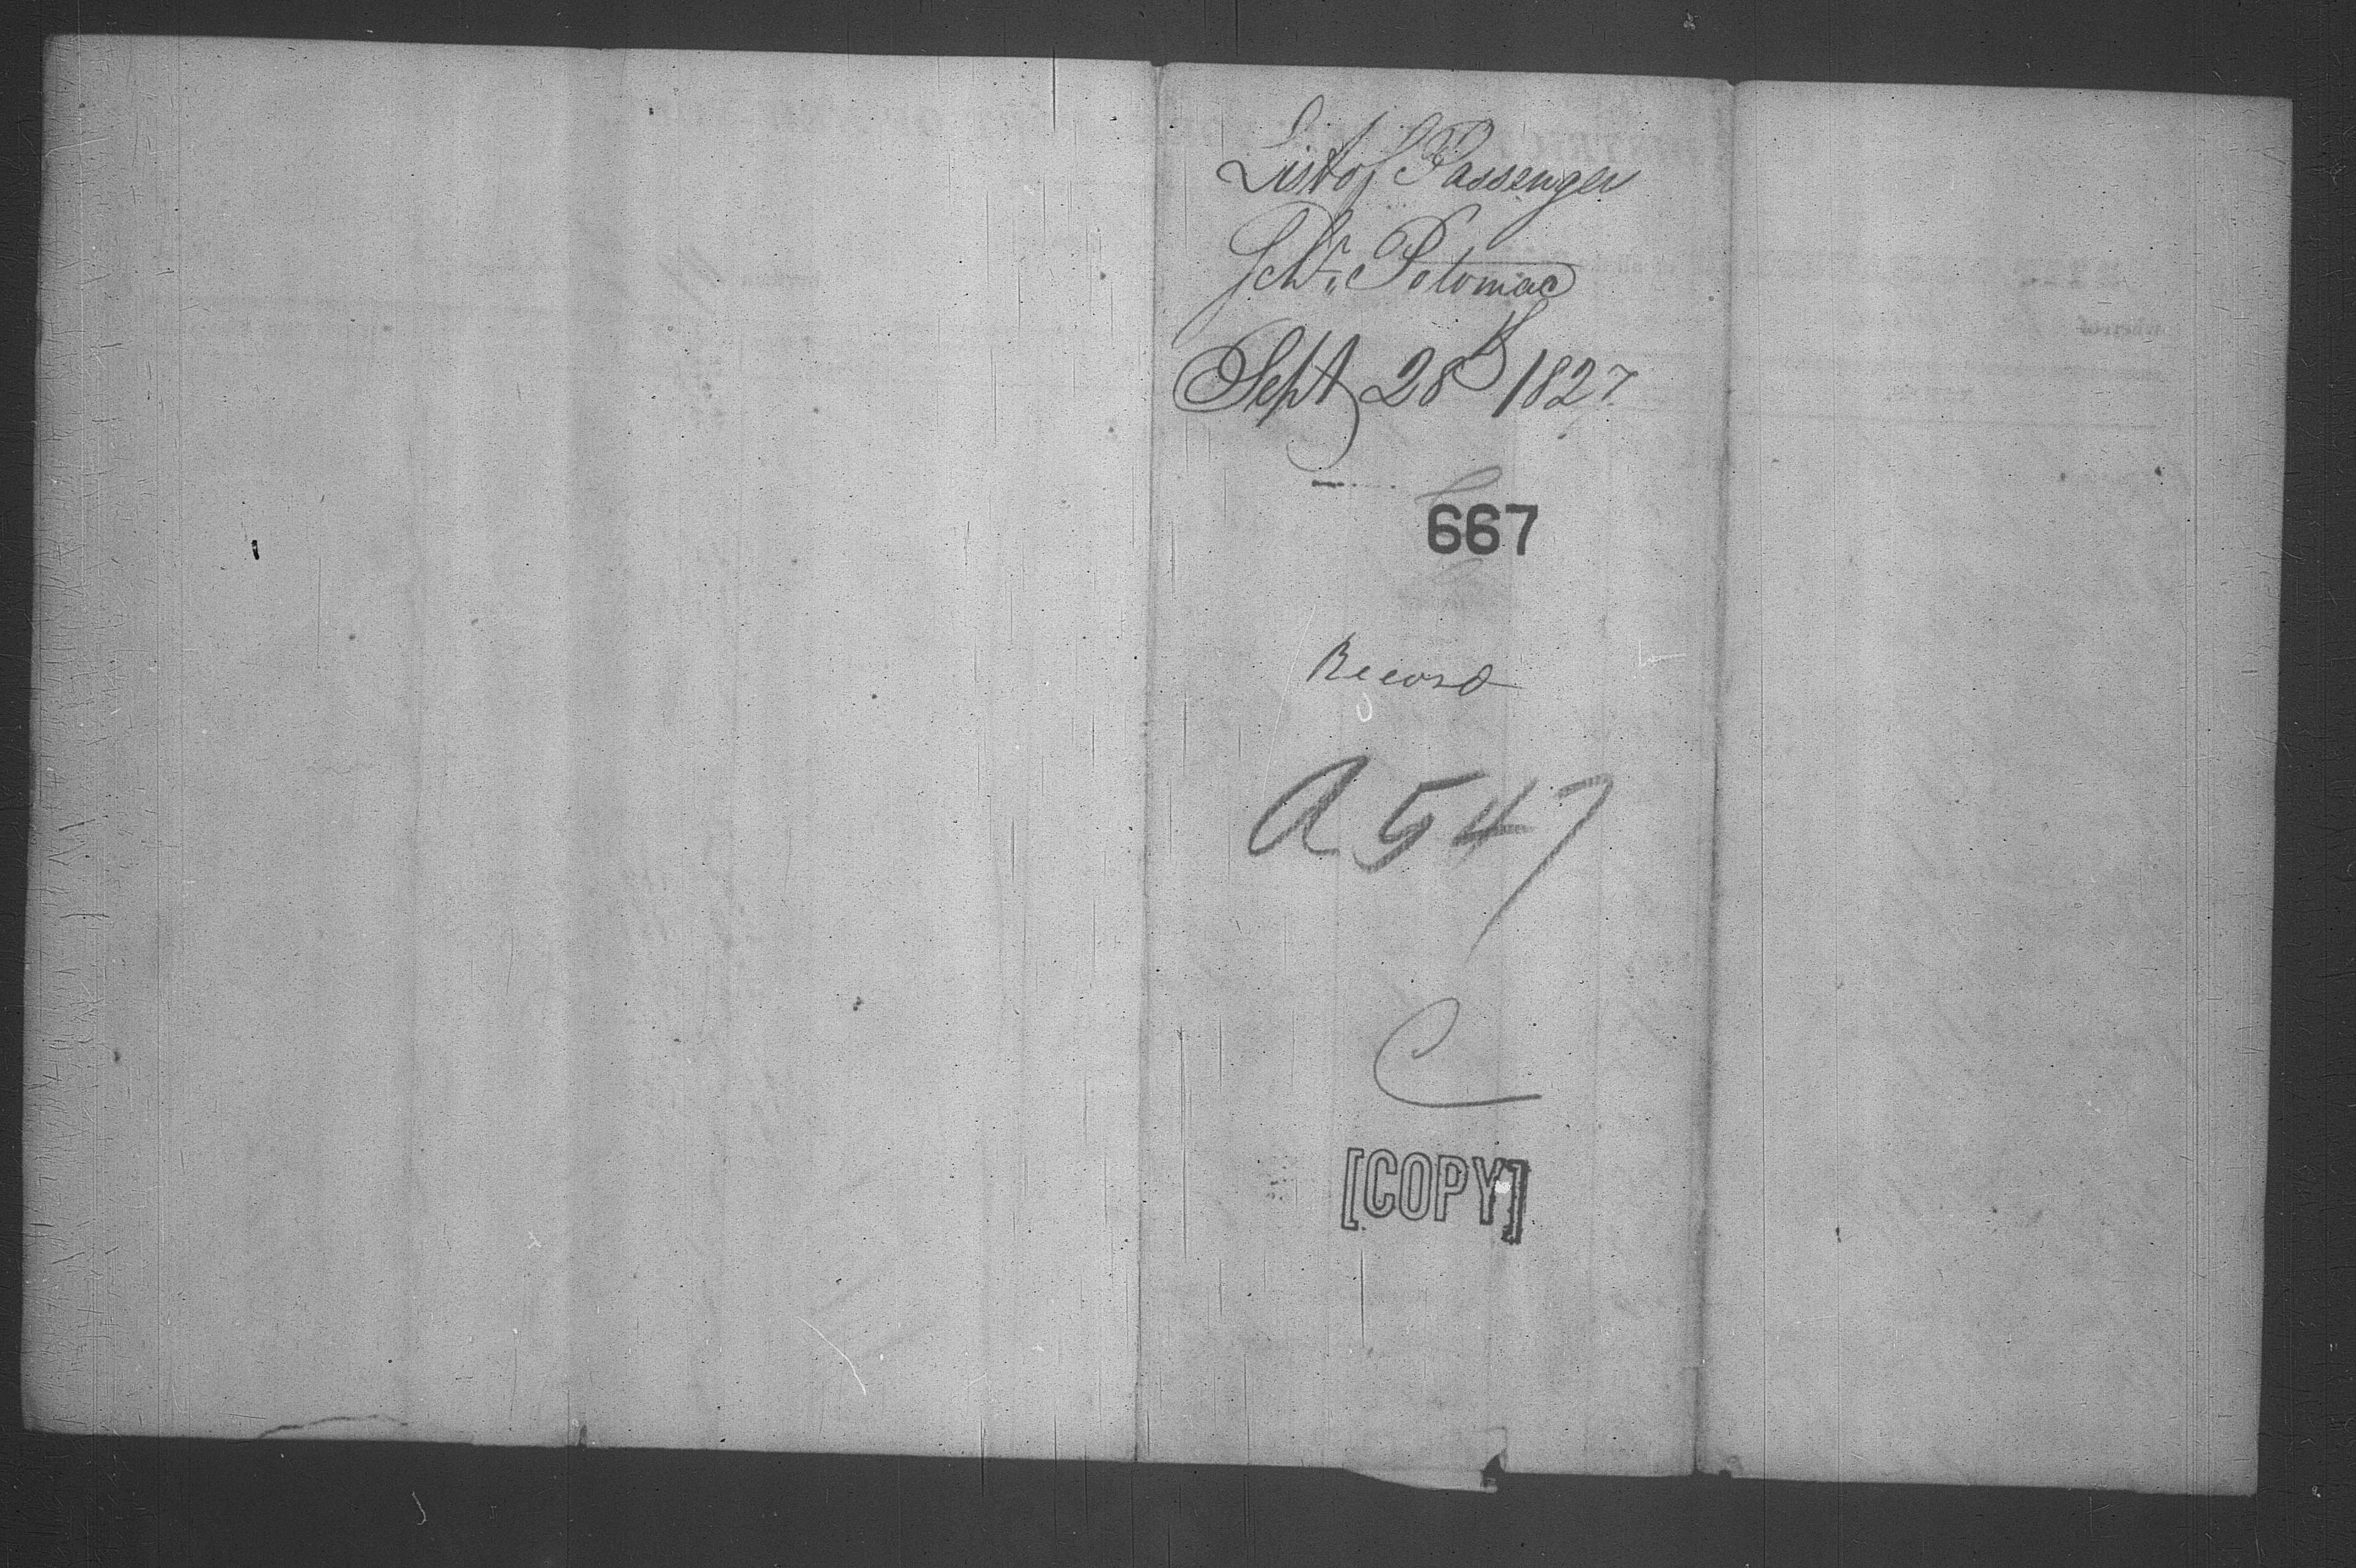 List of Passenger
Schr. Potomac
Sept 28th 1827
667
Record
A 547
C
[COPY]